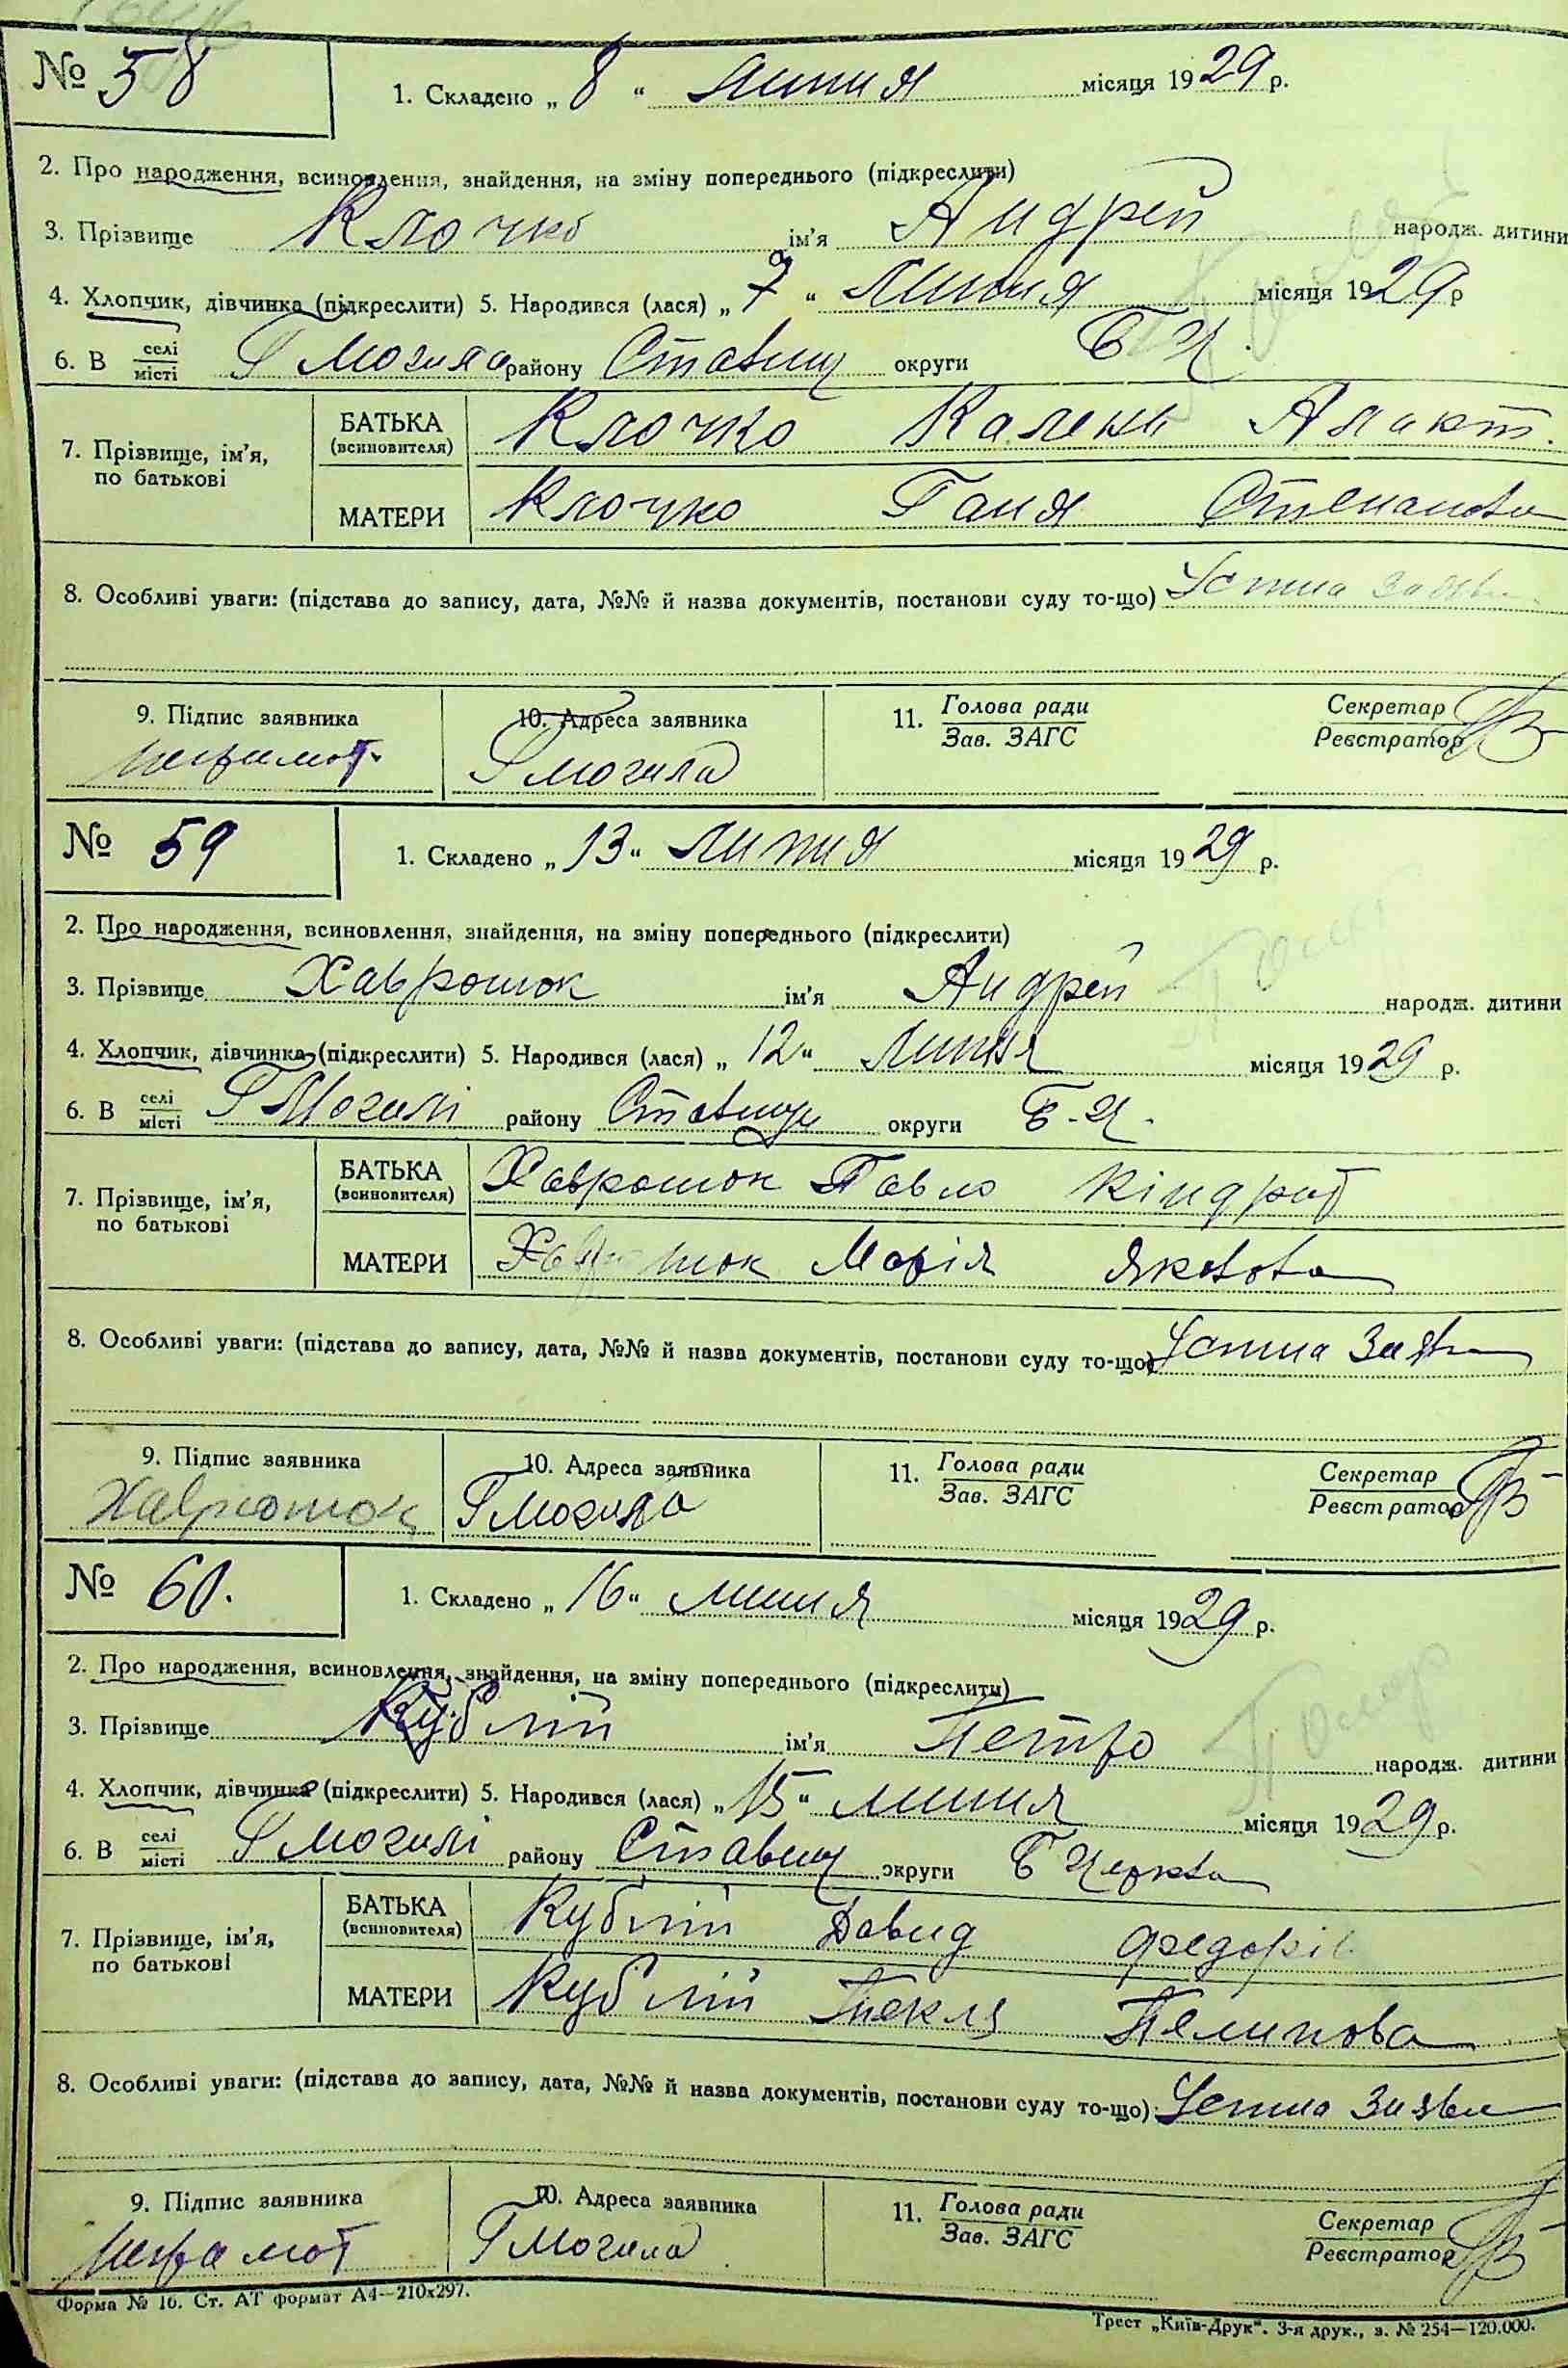 № 58
1. Складено „ 8 “ липня місяця 1929 р.
2. Про народження, всиновлення, знайдення, на зміну попереднього (підкреслити)
3. Прізвище Клочко ім'я Андрей народж. дитини
4. Хлопчик, дівчинка (підкреслити) 5. Народився (лася) „ 7 “ Липня місяця 1929 р
6. В селі/місті Г Могила району Ставищ округи Б Ц.
7. Прізвище, ім'я, по батькові
БАТЬКА (всиновителя) Клочко Калень
МАТЕРИ Клочко Ганя Степанова
8. Особливі уваги: (підстава до запису, дата, №№ й назва документів, постанови суду то-що) Устна заява
9. Підпис заявника неграмот.
10. Адреса заявника Г могила
11. Голова ради / Зав. ЗАГС
Секретар / Реєстратор
№ 59
1. Складено „ 13 “ Липня місяця 1929 р.
2. Про народження, всиновлення, знайдення, на зміну попереднього (підкреслити)
3. Прізвище Хаврошок ім'я Андрей народж. дитини
4. Хлопчик, дівчинка (підкреслити) 5. Народився (лася) „ 12 “ Липня місяця 1929 р.
6. В селі/місті Г Могилі району Ставищ округи Б-Ц.
7. Прізвище, ім'я, по батькові
БАТЬКА (всиновителя) Хаврошок Павло Кіндрат
МАТЕРИ Марія Яковова
8. Особливі уваги: (підстава до запису, дата, №№ й назва документів, постанови суду то-що) Устна Заява
9. Підпис заявника
10. Адреса заявника Г Могила
11. Голова ради / Зав. ЗАГС
Секретар / Реєстратор
№ 60.
1. Складено „ 16 “ липня місяця 1929 р.
2. Про народження, всиновлення, знайдення, на зміну попереднього (підкреслити)
3. Прізвище Кублій ім'я Петро народж. дитини
4. Хлопчик, дівчинка (підкреслити) 5. Народився (лася) „ 15 “ липня місяця 1929 р.
6. В селі/місті Г Могилі району Ставищ округи Б Церква
7. Прізвище, ім'я, по батькові
БАТЬКА (всиновителя) Кублій Давид Федорів
МАТЕРИ Кублій Текля Пелипова
8. Особливі уваги: (підстава до запису, дата, №№ й назва документів, постанови суду то-що) Устна Заява
9. Підпис заявника неграмот
10. Адреса заявника Г Могила
11. Голова ради / Зав. ЗАГС
Секретар / Реєстратор
Форма № 16. Ст. АТ формат А4—210х297.
Трест „Київ-Друк“. 3-я друк., з. № 254—120.000.